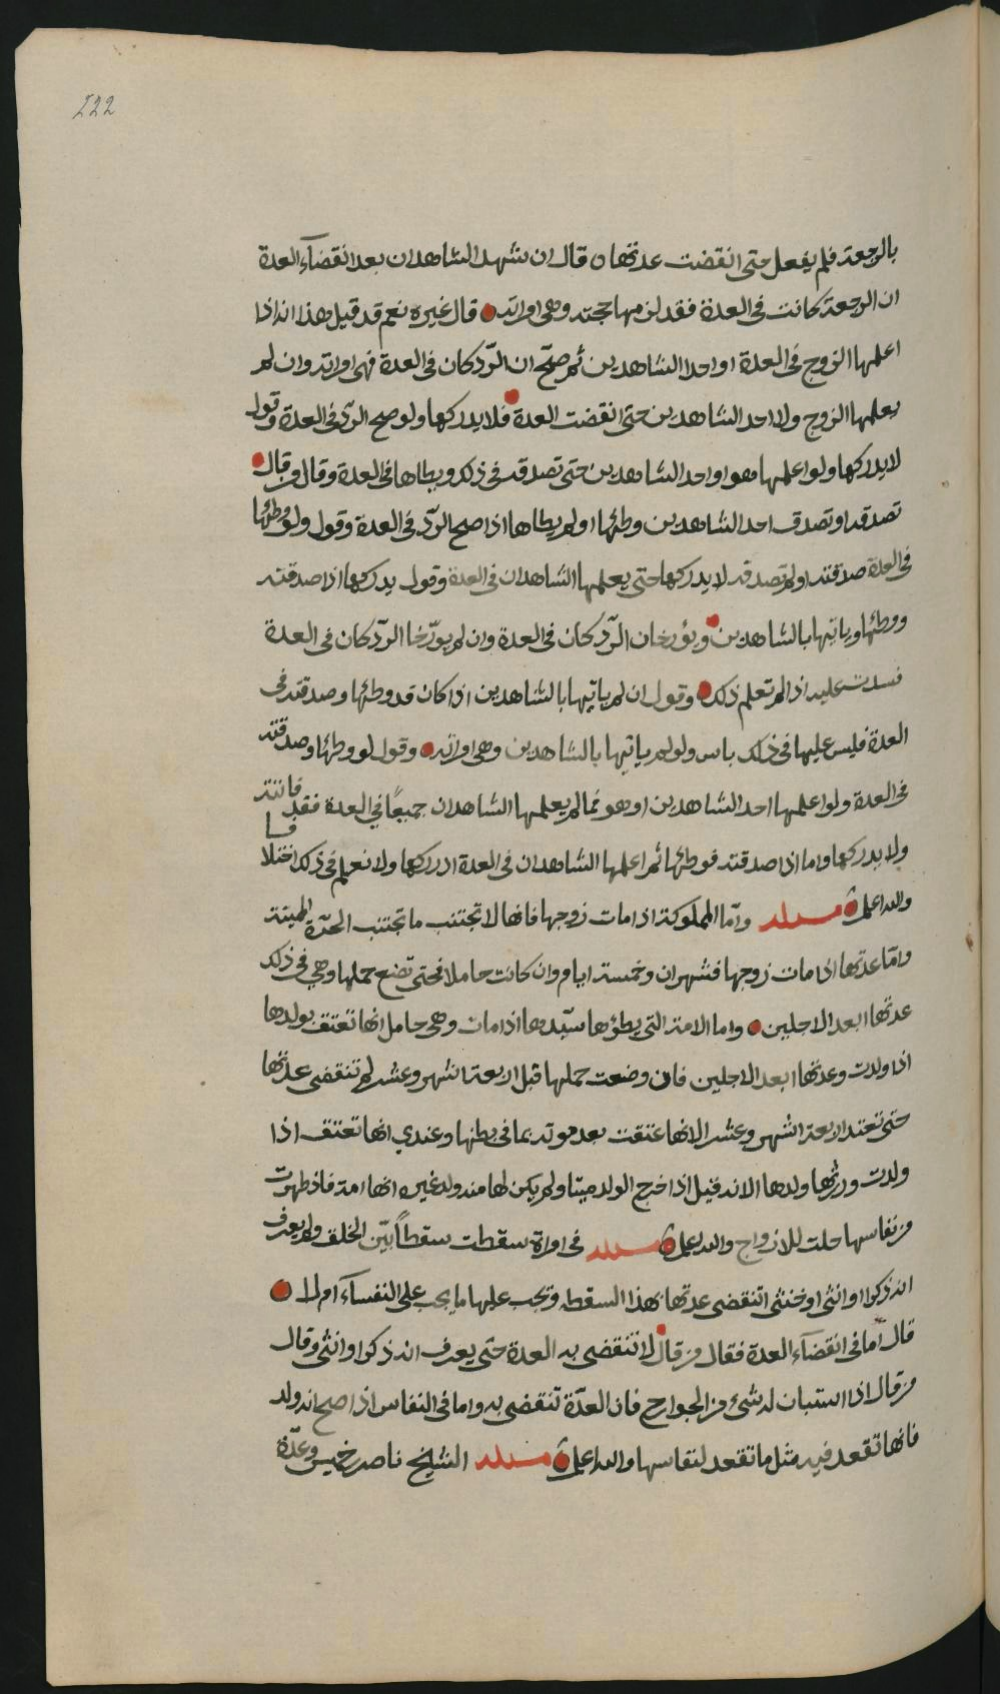 222
بالرجعة فلم يفعل حتى انقضت عدتها ٥ قال ان شهد الشاهدان بعد انقضآء العدة
ان الرجعة كانت فى العدة فقد لزمها حجته وهى امراته قال غيره نعم قد قيل هذا انه اذا
اعلمها الزوج فى العدة او احد الشاهدين ثم صحّ ان الرّد كان فى العدة فهى امراته وان لم
يعلمها الزوج ولا احد الشاهدين حتى انقضت العدة فلا يدركها ولو صح الردّ فى العدة وقول
لا يدركها ولو اعلمها هو او احد الشاهدين حتى تصدقه فى ذلك ويطاها فى العدة وقال من قال
تصدقه او تصدق احد الشاهدين وطئها او لم يطاها اذا صح الردّ فى العدة وقول ولو وطئها
فى العدة صدقته او لم تصدقه لا يدركها حتى يعلمها الشاهدان فى العدة وقول يدركها اذا صدقته
ووطئها وياتيها بالشاهدين ويؤرخان الرّد كان فى العدة وان لم يورّخا الردّ كان فى العدة
فسدت عليه اذا لم تعلم ذلك وقول ان لم ياتيها بالشاهدين اذا كان قد وطئها وصدقته فى
العدة فليس عليها فى ذلك باس ولو لم ياتيها بالشاهدين وهى امراته وقول لو وطئها وصدقته
فى العدة ولو اعلمها احد الشاهدين او هو فما لم يعلمها الشاهدان جميعًا في العدة فقد فاتته
ولا يدركها واما اذا صدقته فوطئها ثم اعلمها الشاهدان فى العدة ادركها ولا نعلم فى ذلك اختلافا
والله اعلم مسله وامّا المملوكة اذا مات زوجها فانها لا تجتنب ما تجتنب الحرّة المميتة
وامّا عدتها اذا مات زوجها فشهران وخمسة ايام وان كانت حاملا فحتى تضع حملها وهي فى ذلك
عدتها ابعد الاجلين واما الامة التى يطؤها سيّدها اذا مات وهى حامل انها تعتق بولدها
اذا ولدت وعدتها ابعد الاجلين فان وضعت حملها قبل اربعة اشهر وعشر لم تنقضى عدتها
حتى تعتد اربعة اشهر وعشرا لانها عتقت بعد موته بما فى بطنها وعندي انها تعتق اذا
ولدت وورثها ولدها الا انه قيل اذا خرج الولد ميتا ولم يكن لها منه ولد غيره انها امة فاذا طهرت
من نفاسها حلت للازواج والله اعلم مسله فى امراة سقطت سقطاً بيّن الخلق ولم يعرف
انه ذكرا او انثى او خنثى اتنقضى عدتها بهذا السقط ويجب عليها ما يجب على النفسآء ام لا
قال اما فى انقضآء العدة فقال من قال لا تنقضى به العدة حتى يعرف انه ذكرا او انثى وقال
من قال اذا استبان له شىء من الجوارح فان العدّة تنقضى به واما فى النفاس اذا صح انه ولد
فانها تقعد فيه مثل ما تقعد لنفاسها والله اعلم مسله الشيخ ناصر بن خميس وعدّة